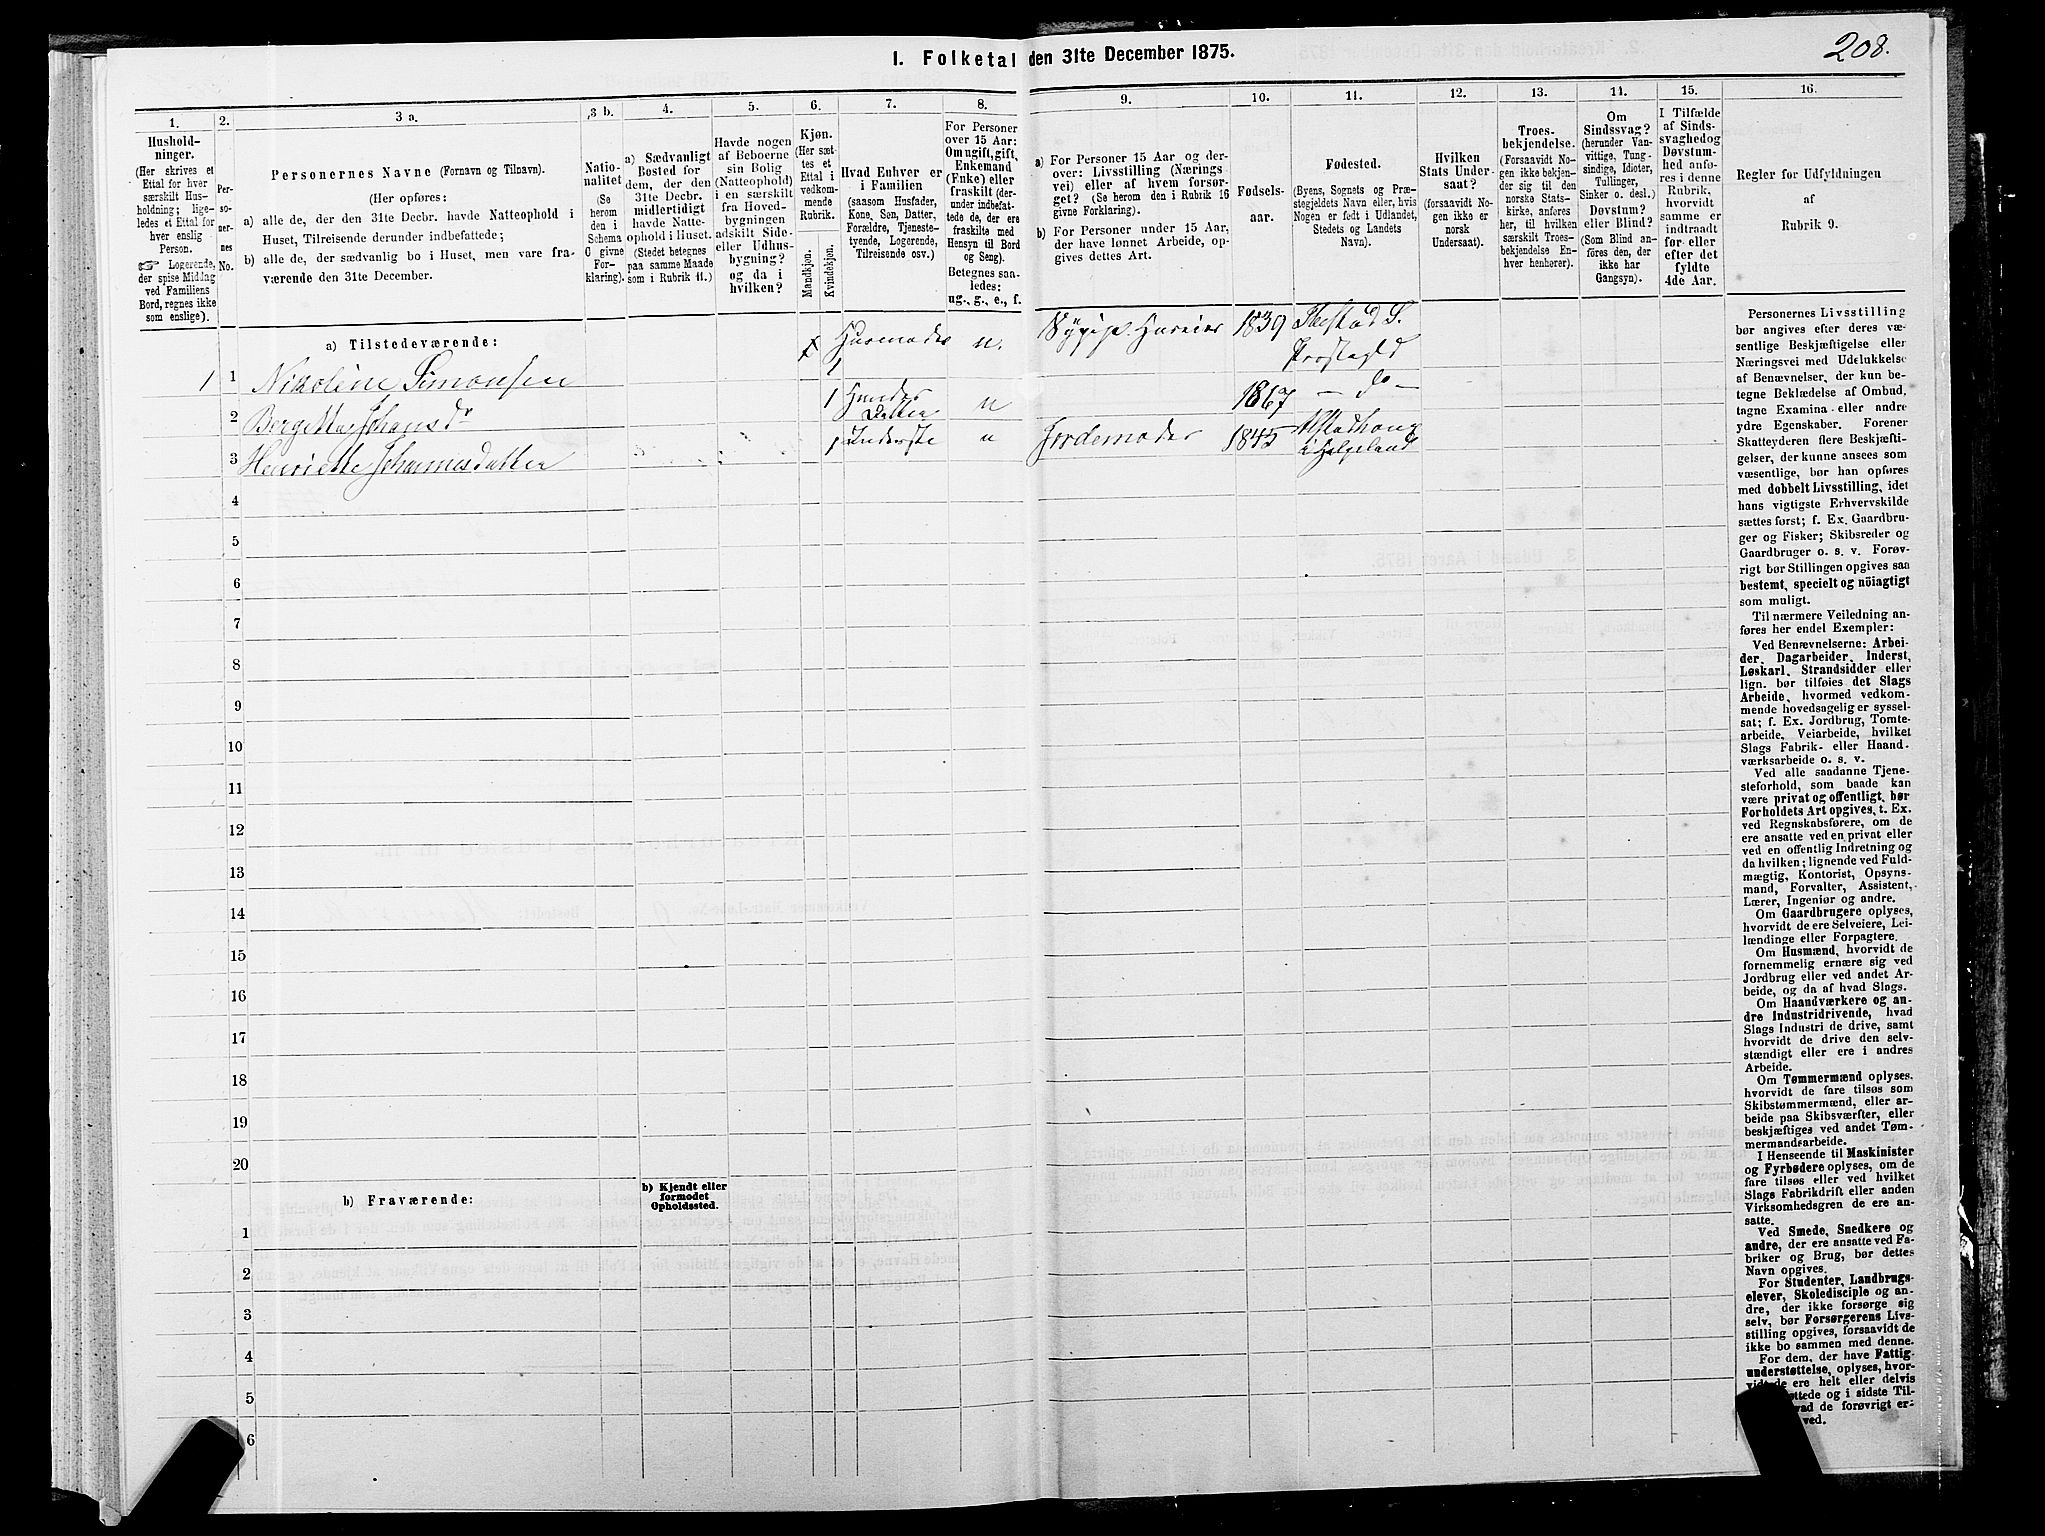 208.
I. Folketal den 31te December 1875.
1.
Hushold-
ninger.
(Her skrives et
Ettal for hver
særskilt Hus-
holdning; lige-
ledes et Ettal for
hver enslig
Person.
☞ Logerende,
der spise Middag
ved Familiens
Bord, regnes ikke
som enslige).
2.
Per-
so-
ner-
nes
No.
3 a.
Personernes Navne (Fornavn og Tilnavn).
(Her opføres:
a) alle de, der den 31te Decbr. havde Natteophold i
Huset, Tilreisende derunder indbefattede;
b) alle de, der sædvanlig bo i Huset, men vare fra-
værende den 31te December.
3 b.
Natio-
nalitet
(Se
herom
den i
Schema
6 givne
For-
klaring).
4.
a) Sædvanligt
Bosted for
dem, der den
31te Decbr.
midlertidigt
havde Natte-
ophold i Huset.
(Stedet betegnes
paa samme Maade
som i Rubrik 11.)
5.
Havde nogen
af Beboerne
sin Bolig
(Natteophold)
i en særskilt
fra Hoved-
bygningen
adskilt Side-
eller Udhus-
bygning?
og da i
hvilken?
6.
Kjøn.
(Her sæt-
tes et
Ettal i
vedkom-
mende
Rubrik.
Mandkjøn.
Kvindekjøn.
7.
Hvad Enhver er
i Familien
(saasom Husfader,
Kone, Søn, Datter,
Forældre, Tjeneste-
tyende, Logerende,
Tilreisende osv.)
8.
For Personer
over 15 Aar:
Om ugift, gift,
Enkemand
(Enke) eller
fraskilt (der-
under indbefat-
tede de, der ere
fraskilte med
Hensyn til Bord
og Seng).
Betegnes saa-
ledes:
ug., g., e., f.
9.
a) For Personer 15 Aar og der-
over: Livsstilling (Nærings-
vei) eller af hvem forsør-
get? (Se herom den i Rubrik 16
givne Forklaring).
b) For Personer under 15 Aar,
der have lønnet Arbeide, op-
gives dettes Art.
10.
Fødsels-
aar.
11.
Fødested.
(Byens, Sognets og Præ-
stegjeldets Navn eller, hvis
Nogen er født i Udlandet,
Stedets og Landets
Navn).
12.
Hvilken
Stats Under-
saat?
(forsaavidt No-
gen ikke er
norsk
Undersaat).
13.
Troes-
bekjendelse.
(Forsaavidt No-
gen ikke bekjen-
der sig til den
norske Stats-
kirke, anføres
her, til hvilken
særskilt Troes-
bekjendelse En-
hver henhører).
14.
Om
Sindssvag?
(herunder Van-
vittige, Tung-
sindige, Idioter,
Tullinger,
Sinker o. desl.)
Døvstum?
eller Blind?
(Som Blind an-
føres den, der
ikke har
Gangsyn).
15.
I Tilfælde
af Sinds-
svaghed og
Døvstum-
hed anfø-
res i denne
Rubrik,
hvorvidt
samme er
indtraadt
før eller
efter det
fyldte
4de Aar.
16.
Regler for Udfyldningen
af
Rubrik 9.
a) Tilstedeværende:
1 1 Nikoline Simonsen 1 Husmoder u. 1839 Ibestad S. Prestegjeld
2 Johansdr 1 Hendes Datter u 1867 — do —
3 Henriette Johannesdatter 1 Inderste u Jordemoder 1845 Alstadhoug i Helgeland
4
5
6
7
8
9
10
11
12
13
14
15
16
17
18
19
20
b) Fraværende:
b) Kjendt eller
formodet
Opholdssted.
1
2
3
4
5
6
Personernes Livsstilling
bør angives efter deres væ-
sentlige Beskjæftigelse eller
Næringsvei med Udelukkelse
af Benævnelser, der kun be-
tegne Beklædelse af Ombud,
tagne Examina eller andre
ydre Egenskaber. Forener
Skatteyderen flere Beskjæfti-
gelser, der kunne ansees som
væsentlige, bør han opføres
med dobbelt Livsstilling, idet
hans vigtigste Erhvervskilde
sættes først; f. Ex. Gaardbru-
ger og Fisker; Skibsreder og
Gaardbruger o. s. v. Forøv-
rigt bør Stillingen opgives saa
bestemt, specielt og nöiagtigt
som muligt.
Til nærmere Veiledning an-
føres her endel Exempler:
Ved Benævnelserne: Arbei-
der, Dagarbeider, Inderst,
Løskarl, Strandsidder eller
lign. bør tilføies det Slags
Arbeide, hvormed vedkom-
mende hovedsagelig er syssel-
sat; f. Ex. Jordbrug, Tomte-
arbeide, Veiarbeide, hvilket
Slags Fabrik- eller Haand-
værksarbeide o. s. v.
Ved alle saadanne Tjene-
steforhold, som baade kan
være privat og offentligt, bør
Forholdets Art opgives, t. Ex.
ved Regnskabsførere, om de
ere ansatte ved en privat eller
ved en offentlig Indretning og
da hvilken; lignende ved Fuld-
mægtig, Kontorist, Opsyns-
mand, Forvalter, Assistent,
Lærer, Ingeniør og andre.
Om Gaardbrugere oplyses,
hvorvidt de ere Selveiere, Lei-
lændinge eller Forpagtere.
Om Husmænd, hvorvidt de
fornemmelig ernære sig ved
Jordbrug eller ved andet Ar-
beide, og da af hvad Slags.
Om Haandværkere og an-
dre Industridrivende, hvad
Slags Industri de drive, samt
hvorvidt de drive den selv-
stændigt eller ere i andres
Arbeide.
Om Tømmermænd oplyses,
hvorvidt de fare tilsøs som
Skibstømmermænd, eller ar-
beide paa Skibsværfter, eller
beskjæftiges ved andet Tøm-
mermandsarbeide.
I Henseende til Maskinister
og Fyrbødere oplyses, om de
fare tilsøs eller ved hvilket
Slags Fabrikdrift eller anden
Virksomhedsgren de ere an-
satte.
Ved Smede, Snedkere og
andre, der ere ansatte ved Fa-
briker og Brug, bør dettes
Navn opgives.
For Studenter, Landbrugs-
elever, Skoledisciple og an-
dre, der ikke forsørge sig
selv, bør Forsørgerens Livs-
stilling opgives, forsaavidt de
ikke bo sammen med denne.
For dem, der have Fattig-
understøttelse, oplyses, hvor-
de ere helt eller delvis
og i sidste Til-
de forøvrigt er-
ved.